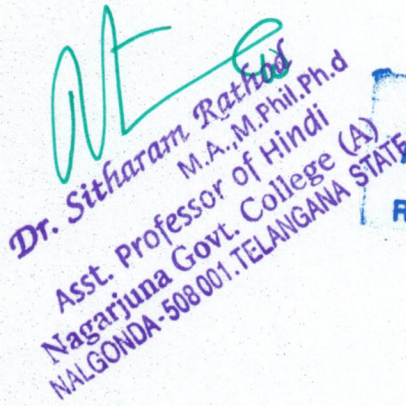 Dr. Sitharam Rathod
M.A.,M.Phil.Ph.d
Asst. Professor of Hindi
Nagarjuna Govt. College (A)
NALGONDA-508 001.TELANGANA STATE